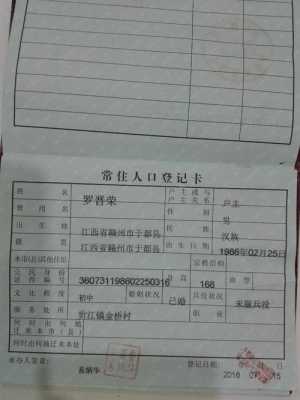 常住人口登记卡
姓名 罗晋荣 户主或与户主关系 户主
曾用名 性别 男
出生地 江西省赣州市于都县 民族 汉族
籍贯 江西省赣州市于都县 出生日期 1986年02月25日
本市(县)其他住址 宗教信仰
公民身份证件编号 360731198602250316 身高 168 血型
文化程度 初中 婚姻状况 已婚 兵役状况 未服兵役
服务处所
何时由何地迁来本市(县)
何时由何地迁来本址
承办人签章: 登记日期:
2016
15